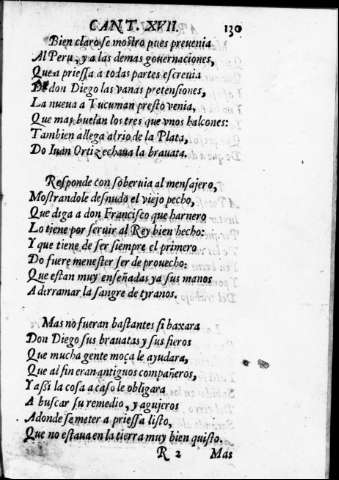 CANT. XVII. 130
Bien claro se mostro pues preuenia
Al Peru, y a las demas gouernaciones,
Que a priessa a todas partes escreuia
De don Diego las vanas pretensiones,
La nueua a Tucuman presto venia,
Que mas buelan los tres que vnos balcones:
Tambien allega al rio de la Plata,
Do Iuan Ortiz echaua la brauata.
Responde con soberuia al mensajero,
Mostrandole desnudo el viejo pecho,
Que diga a don Francisco que harnero
Lo tiene por seruir al Rey bien hecho:
Y que tiene de ser siempre el primero
Do fuere menester ser de prouecho:
Que estan muy enseñadas ya sus manos
A derramar la sangre de tyranos.
Mas no fueran bastantes si baxara
Don Diego sus brauatas y sus fieros
Que mucha gente moça le ayudara,
Que al fin eran antiguos compañeros,
Y assi la cosa a caso le obligara
A buscar su remedio, y agujeros
Adonde se meter a priessa listo,
Que no estaua en la tierra muy bien quisto.
R 2 Mas